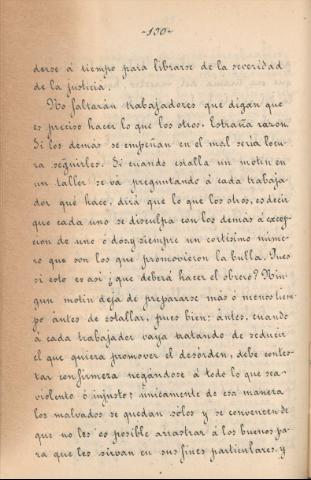 -130-
derse á tiempo para librarse de la severidad
de la justicia.
No faltarán trabajadores que digan que
es preciso hacer lo que los otros. Estraña razon.
Si los demás se empeñan en el mal sería locu
ra seguirles. Si cuando estalla un motin en
un taller se vá preguntando á cada trabaja
dor qué hace, dirá que lo que los otros, es decir
que cada uno se disculpa con los demás á excep
cion de uno ó dos, y siempre un cortísimo núme-
ro que son los que promovieron la bulla. Pues
si esto es así ¿que deberá hacer el obrero? Nin-
gun motin deja de prepararse más ó menos tiem
po ántes de estallar, pues bien: ántes, cuando
á cada trabajador vaya tratando de seducir
el que quiera promover el desórden, debe contes-
tar con firmeza negándose á todo lo que sea
violento ó injusto; únicamente de esa manera
los malvados se quedan sólos y se convencen de
que no les es posible arrastrar á los buenos pa-
ra que les sirvan en sus fines particulares, y